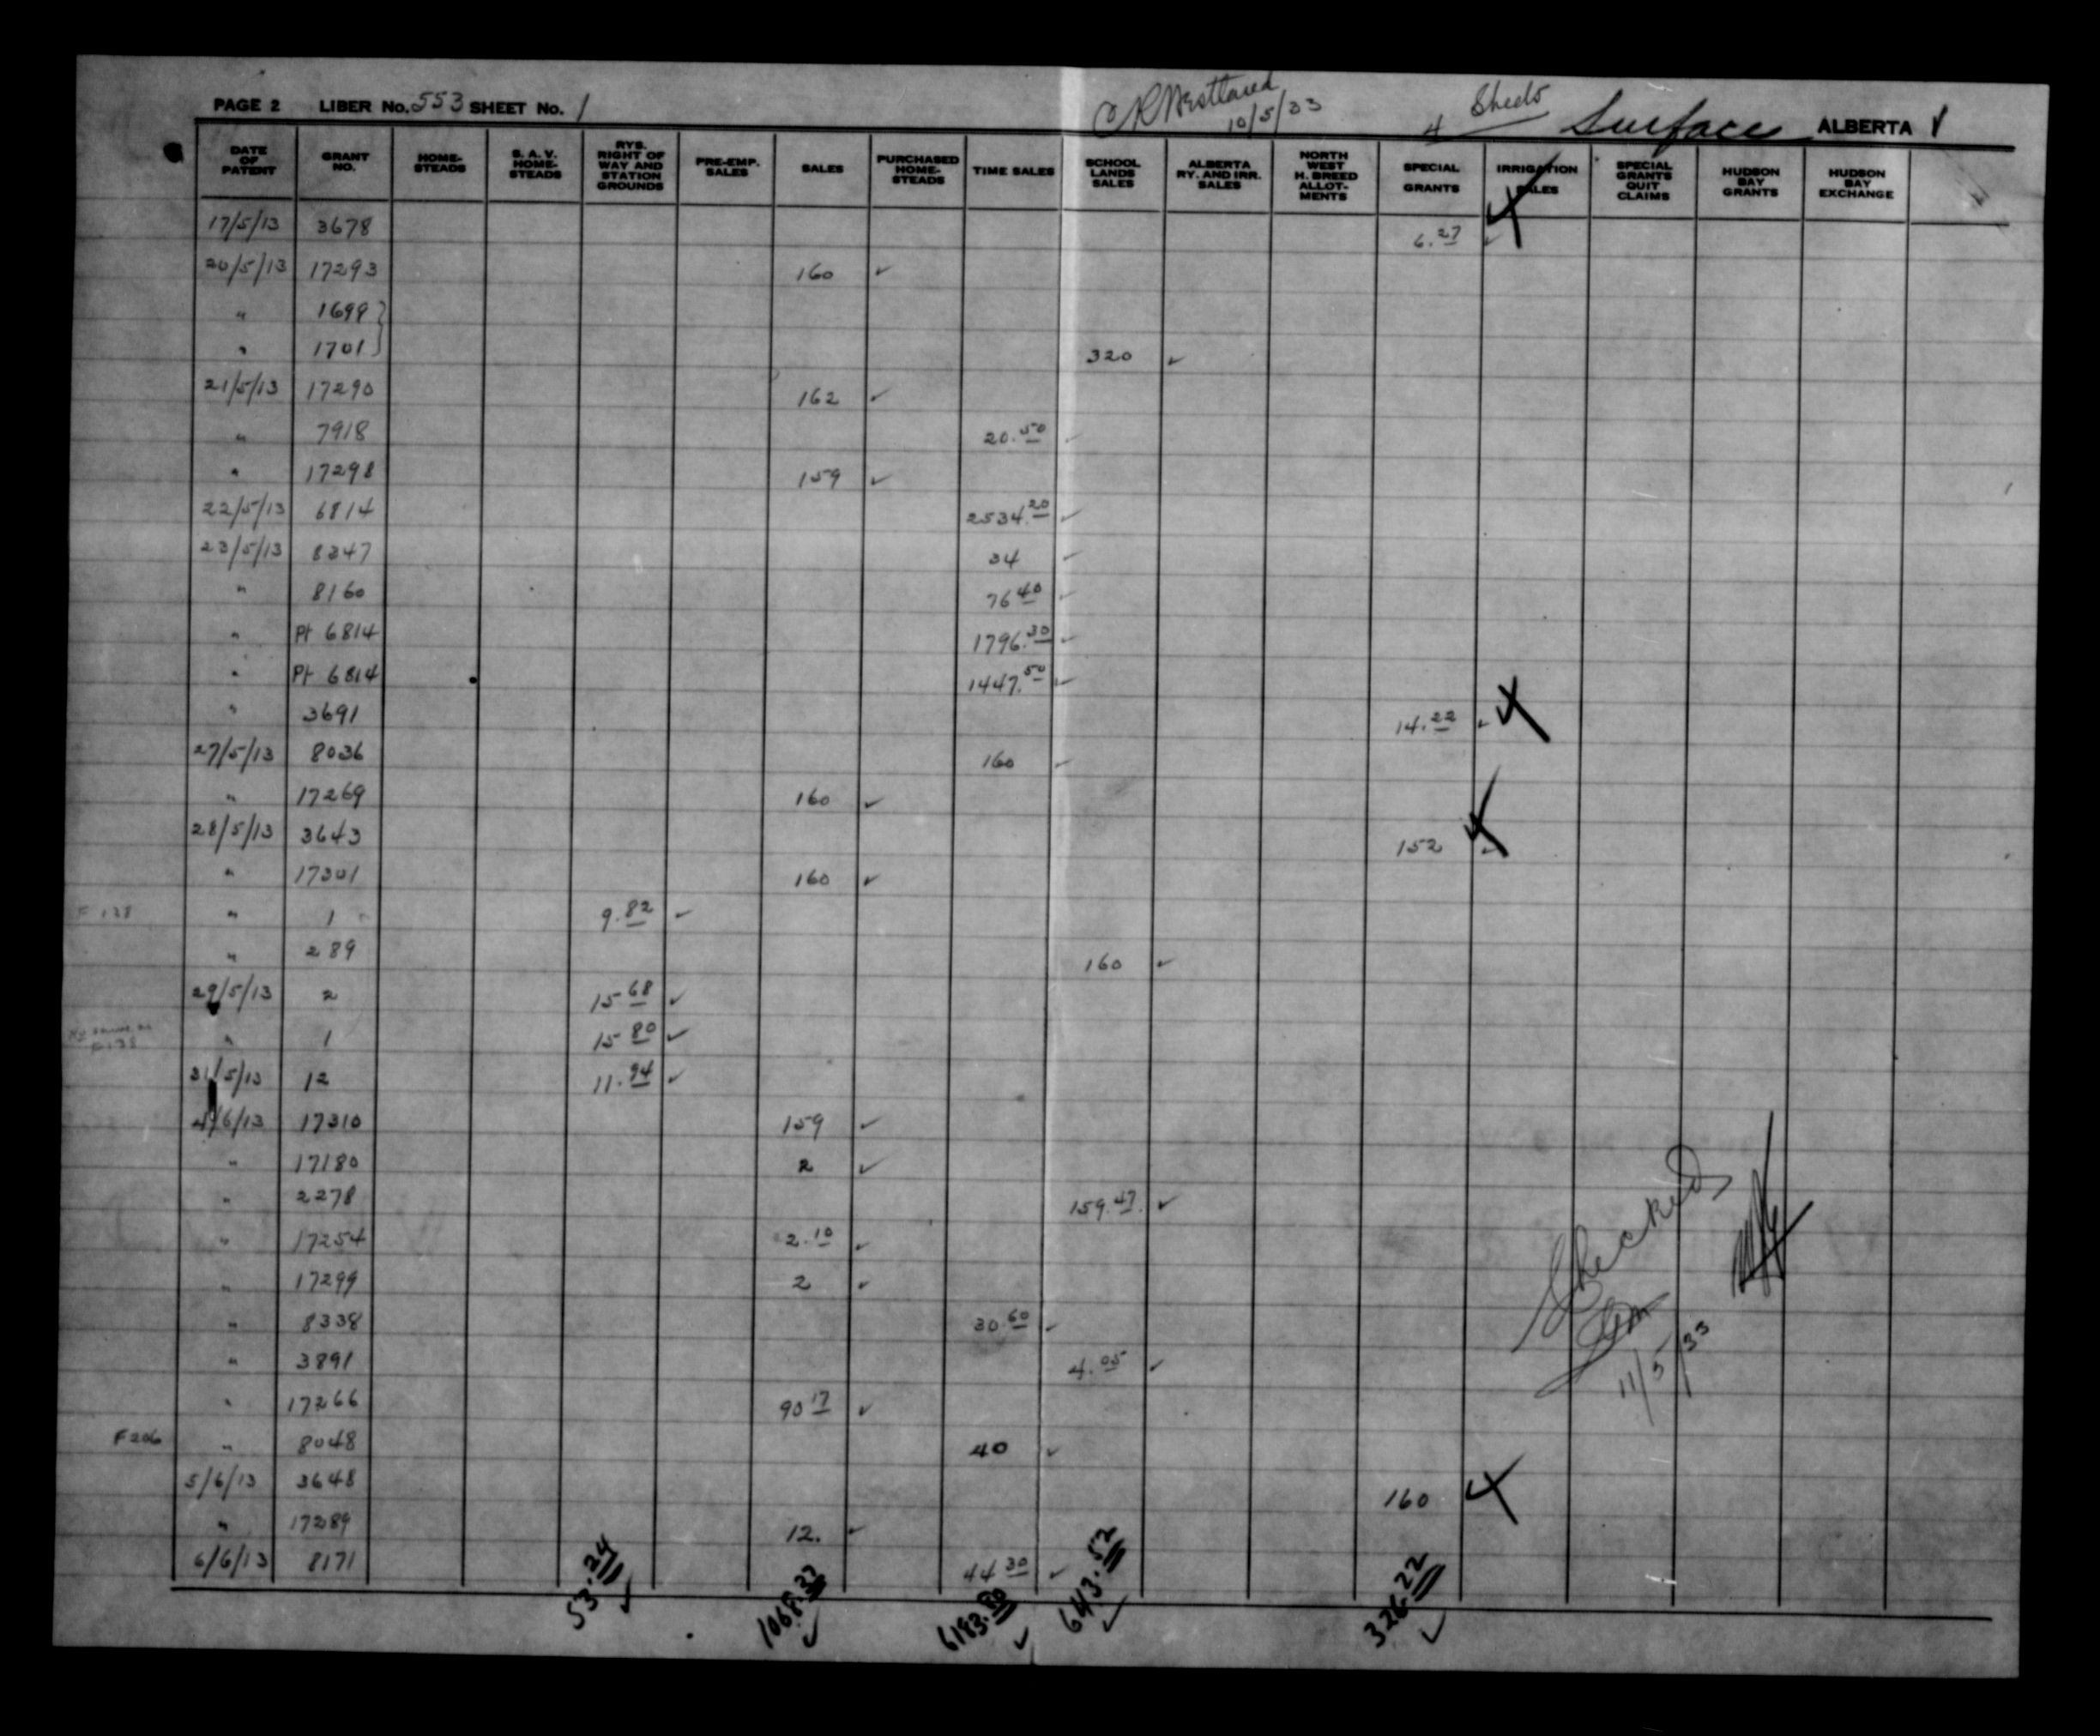 PAGE 2 LIBER No. 553 SHEET No. 1
10/5/33
4 Sheets Surface ALBERTA
DATE OF PATENT GRANT NO. HOME-STEADS S. A. V. HOME-STEADS RYS. RIGHT OF WAY AND STATION GROUNDS PRE-EMP. SALES SALES PURCHASED HOME-STEADS TIME SALES SCHOOL LANDS SALES ALBERTA RY. AND IRR. SALES NORTH WEST H. BREED ALLOT-MENTS SPECIAL GRANTS IRRIGATION SALES SPECIAL GRANTS QUIT CLAIMS HUDSON BAY GRANTS HUDSON BAY EXCHANGE
17/5/13 3678 6.27 ✓
20/5/13 17293 160 ✓
" 1699 }
" 1701 } 320 ✓
21/5/13 17290 162 ✓
" 7918 20.50 ✓
" 17298 159 ✓
22/5/13 6814 2534.20 ✓
23/5/13 8347 34 ✓
" 8160 76 40 ✓
" Pt 6814 1796.30 ✓
" Pt 6814 1447.50 ✓
" 3691 14.22 ✓
27/5/13 8036 160 ✓
" 17269 160 ✓
28/5/13 3643 152 ✓
" 17301 160 ✓
F 138 " 1 9.82 ✓
" 289 160 ✓
29/5/13 2 15 68 ✓
" 1 15 80 ✓
31/5/13 12 11.94 ✓
4/6/13 17310 159 ✓
" 17180 2 ✓
" 2278 159.47 ✓
" 17254 2.10 ✓
" 17299 2 ✓
" 8338 30.60 ✓
" 3891 4.05 ✓
" 17266 90 17 ✓
F206 " 8048 40 ✓
5/6/13 3648 160
" 17289 12. ✓
6/6/13 8171 44 30 ✓
53.24 ✓ 1068.27 ✓ 6183.80 ✓ 643.52 ✓ 326.22 ✓
Checked
11/5/33